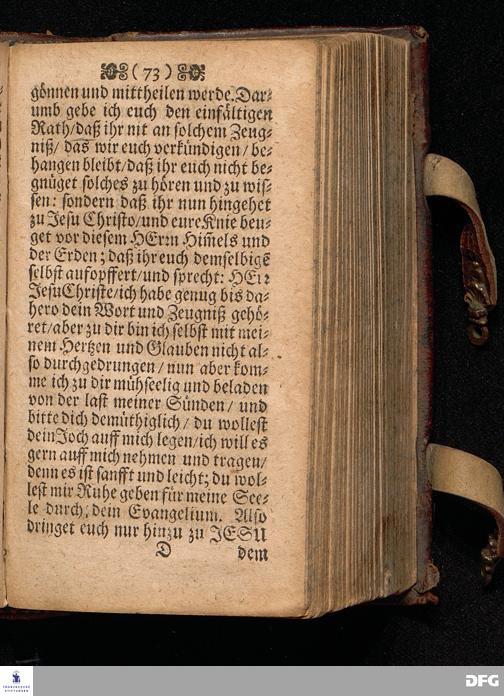 (73)
gönnen und mittheilen werde. Dar⸗
umb gebe ich euch den einfältigen
Rath/ daß ihr nit an solchem Zeug⸗
niß/ das wir euch verkündigen/ be⸗
hangen bleibt/ daß ihr euch nicht be⸗
gnüget solches zu hören und zu wis⸗
sen: sondern daß ihr nun hingehet
zu Jesu Christo/ und eure Knie beu⸗
get vor diesem HErrn Him̄els und
der Erden; daß ihr euch demselbigē
selbst aufopffert/ und sprecht: HErr
Jesu Christe/ ich habe genug bis da⸗
hero dein Wort und Zeugniß gehö⸗
ret/ aber zu dir bin ich selbst mit mei⸗
nem Hertzen und Glauben nicht al⸗
so durchgedrungen/ nun aber kom⸗
me ich zu dir mühseelig und beladen
von der last meiner Sünden/ und
bitte dich demüthiglich/ du wollest
dein Joch auff mich legen/ ich will es
gern auff mich nehmen und tragen/
denn es ist sanfft und leicht; du wol⸗
lest mir Ruhe geben für meine See⸗
le durch, dein Evangelium. Also
dringet euch nur hinzu zu JESU
D dem
FRANCKESCHE
STIFTUNGEN
DFG